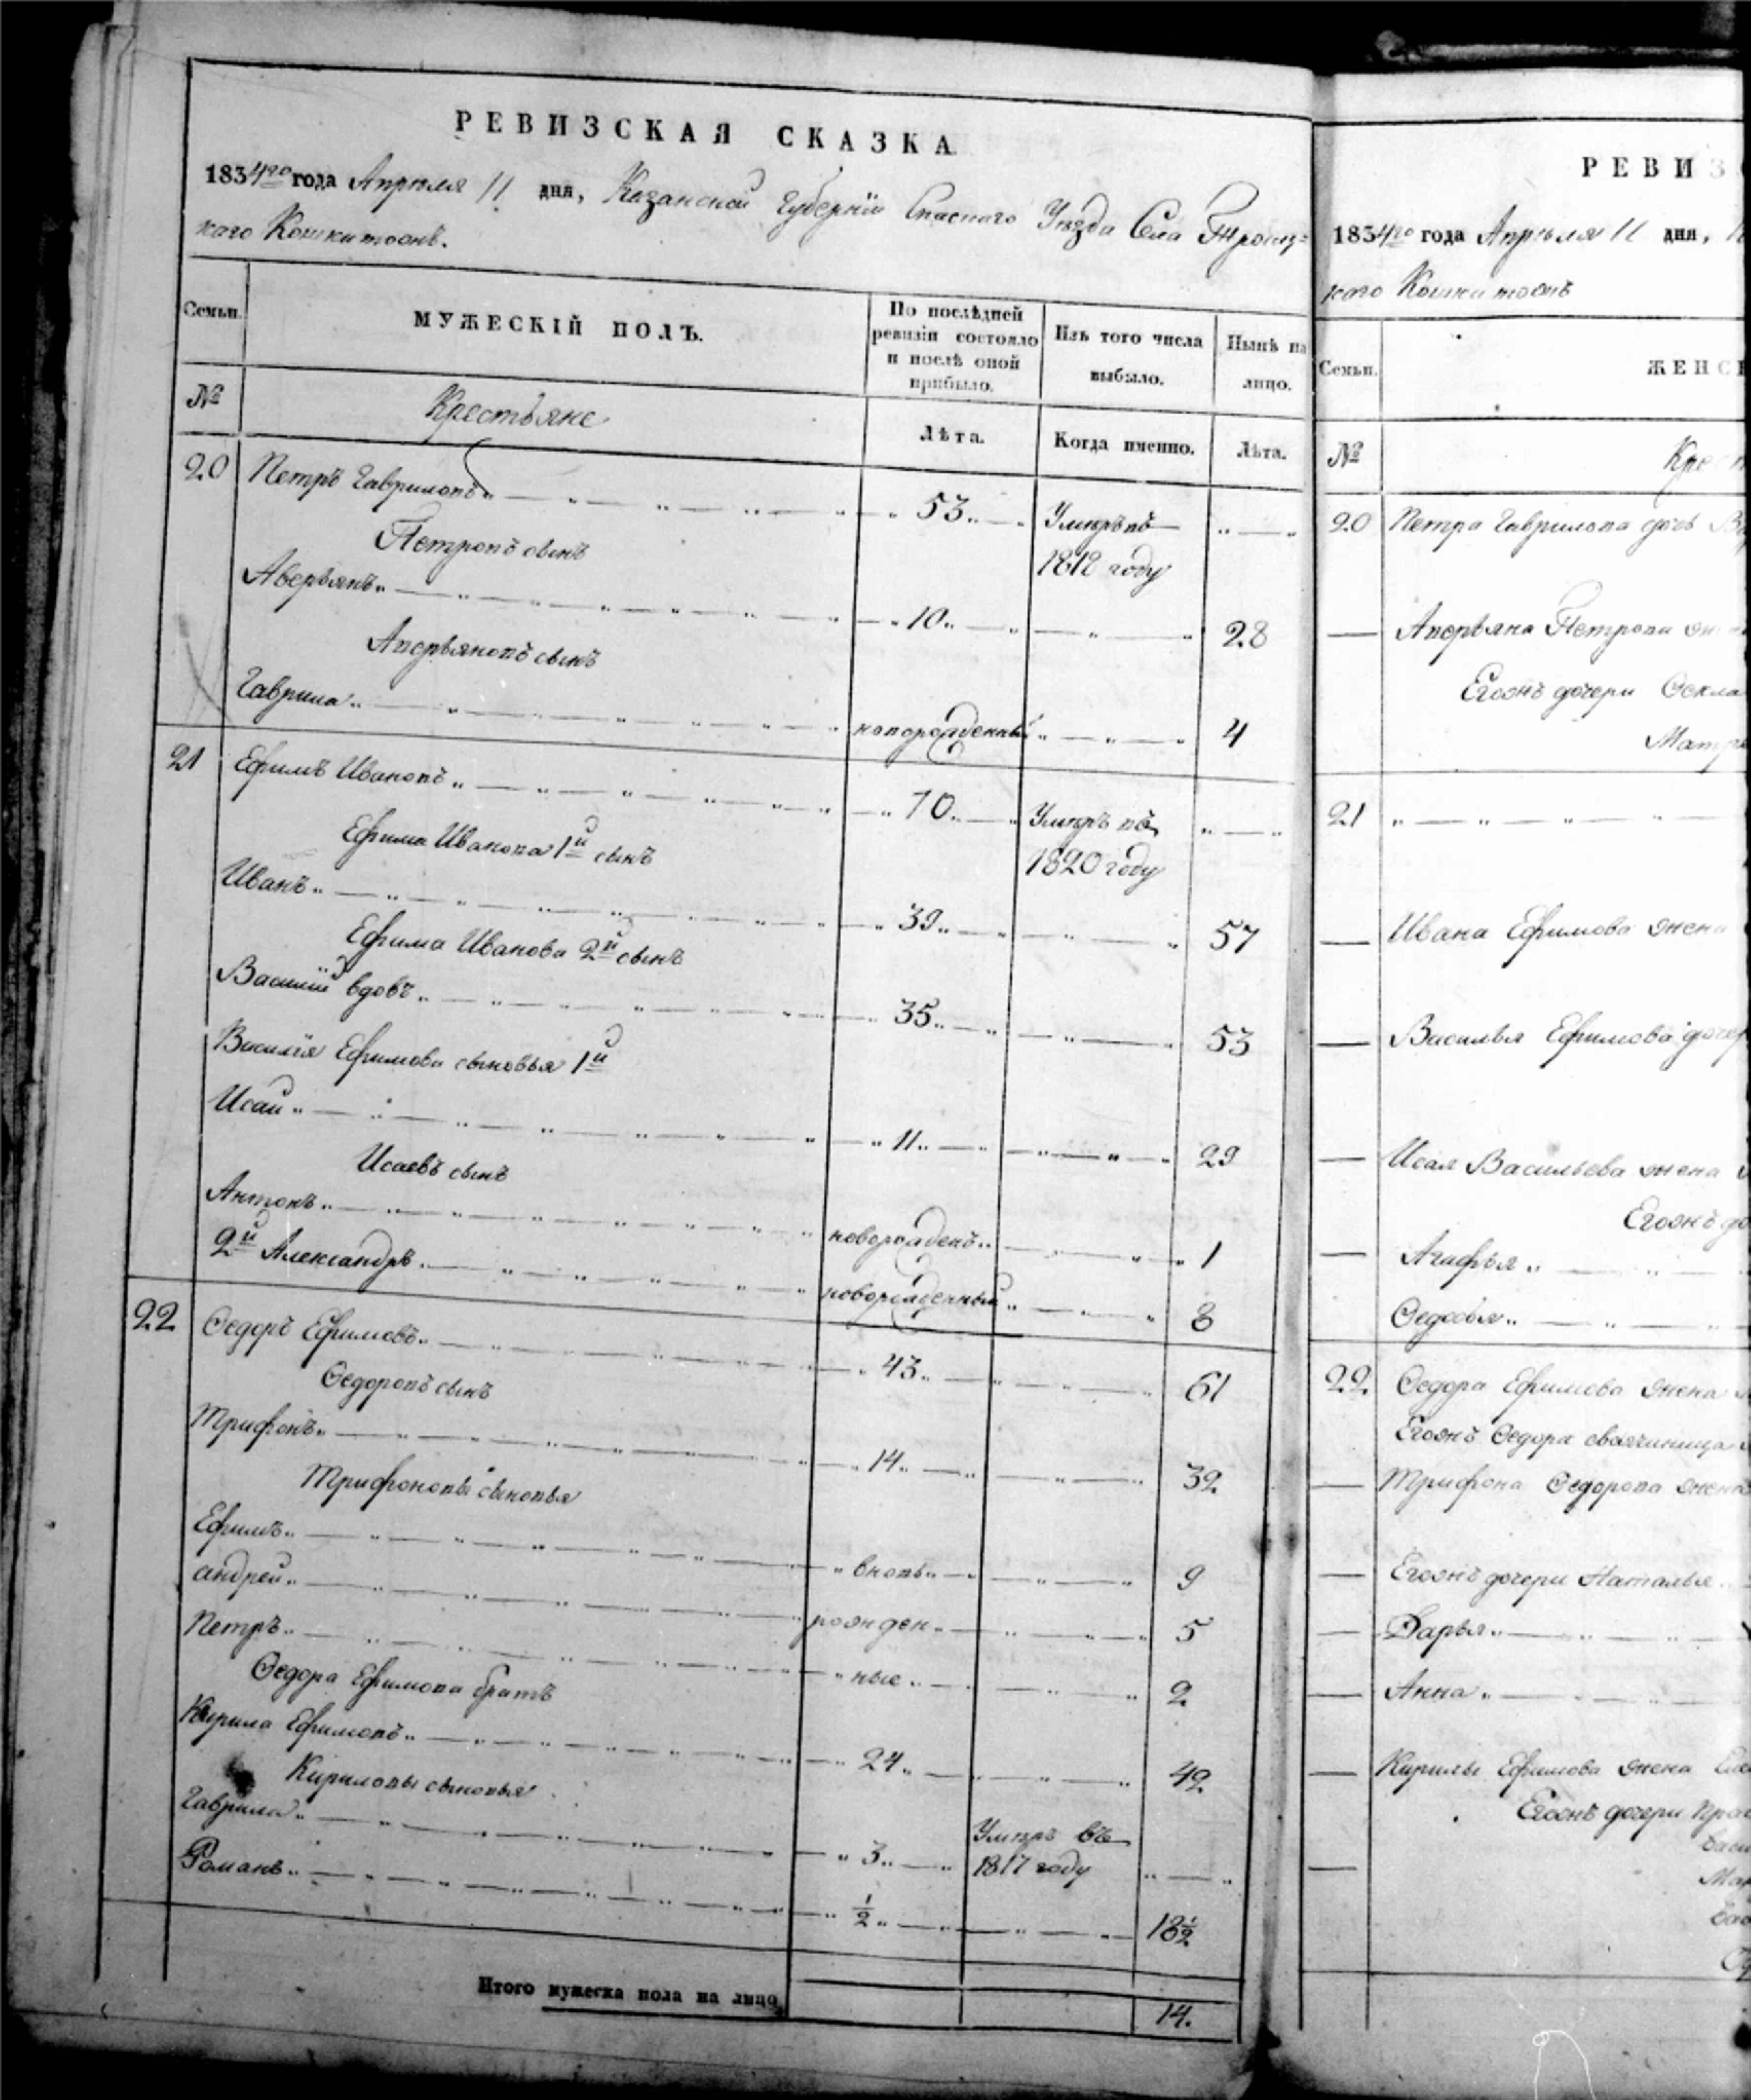 РЕВИЗСКАЯ СКАЗКА
1834го года Апреля 11 дня, Казанской Губернїи Спаскаго Уезда Села Троиц=
каго Кошки тожъ.
Семьи. МУЖЕСКІЙ ПОЛЪ. По послѣдней ревизіи состояло и послѣ оной прибыло. Изъ того числа выбыло. Нынѣ на лицо.
№ Крестьяне Лѣта. Когда именно. Лѣта.
20 Петръ Гавриловъ 53 Умеръ въ
1818 году
Петровъ сынъ
Аверьянъ 10 28
Аверьяновъ сынъ
Гаврила новорожденный 4
21 Ефимъ Ивановъ 70 Умеръ въ
1820 году
Ефима Иванова 1й сынъ
Иванъ 39 57
Ефима Иванова 2й сынъ
Василїй вдовъ 35 53
Василїя Ефимова сыновья 1й
Исай 11 29
Исаевъ сынъ
Антонъ новорожденъ 1
2й Александръ новорожденный 8
22 Ѳедоръ Ефимовъ 43 61
Ѳедоровъ сынъ
Трифонъ 14 32
Трифоновы сыновья
Ефимъ вновь 9
андрей рожден 5
Петръ ные 2
Ѳедора Ефимова братъ
Кирила Ефимовъ 24 42
Кириловы сыновья
Гаврила 3 Умеръ въ
1817 году
Романъ ½ 18½
Итого мужеска пола на лицо 14.
РЕВИЗ
1834го года Апреля 11 дня,
каго Кошки тожъ
Семьи. ЖЕНС
№ Крест
20 Петра Гаврилова дочь
Аверьяна Петрова жена
Егожъ дочери Ѳекла
Матре
21
Ивана Ефимова жена
Василья Ефимова дочер
Исая Васильева жена
Егожъ до
Агафья
Ѳедосья
22 Ѳедора Ефимова жена
Егожъ Ѳедора свояченица
Трифона Ѳедорова жена
Егожъ дочери Наталья
Дарья
Анна
Кирилы Ефимова жена
Егожъ дочери Прас